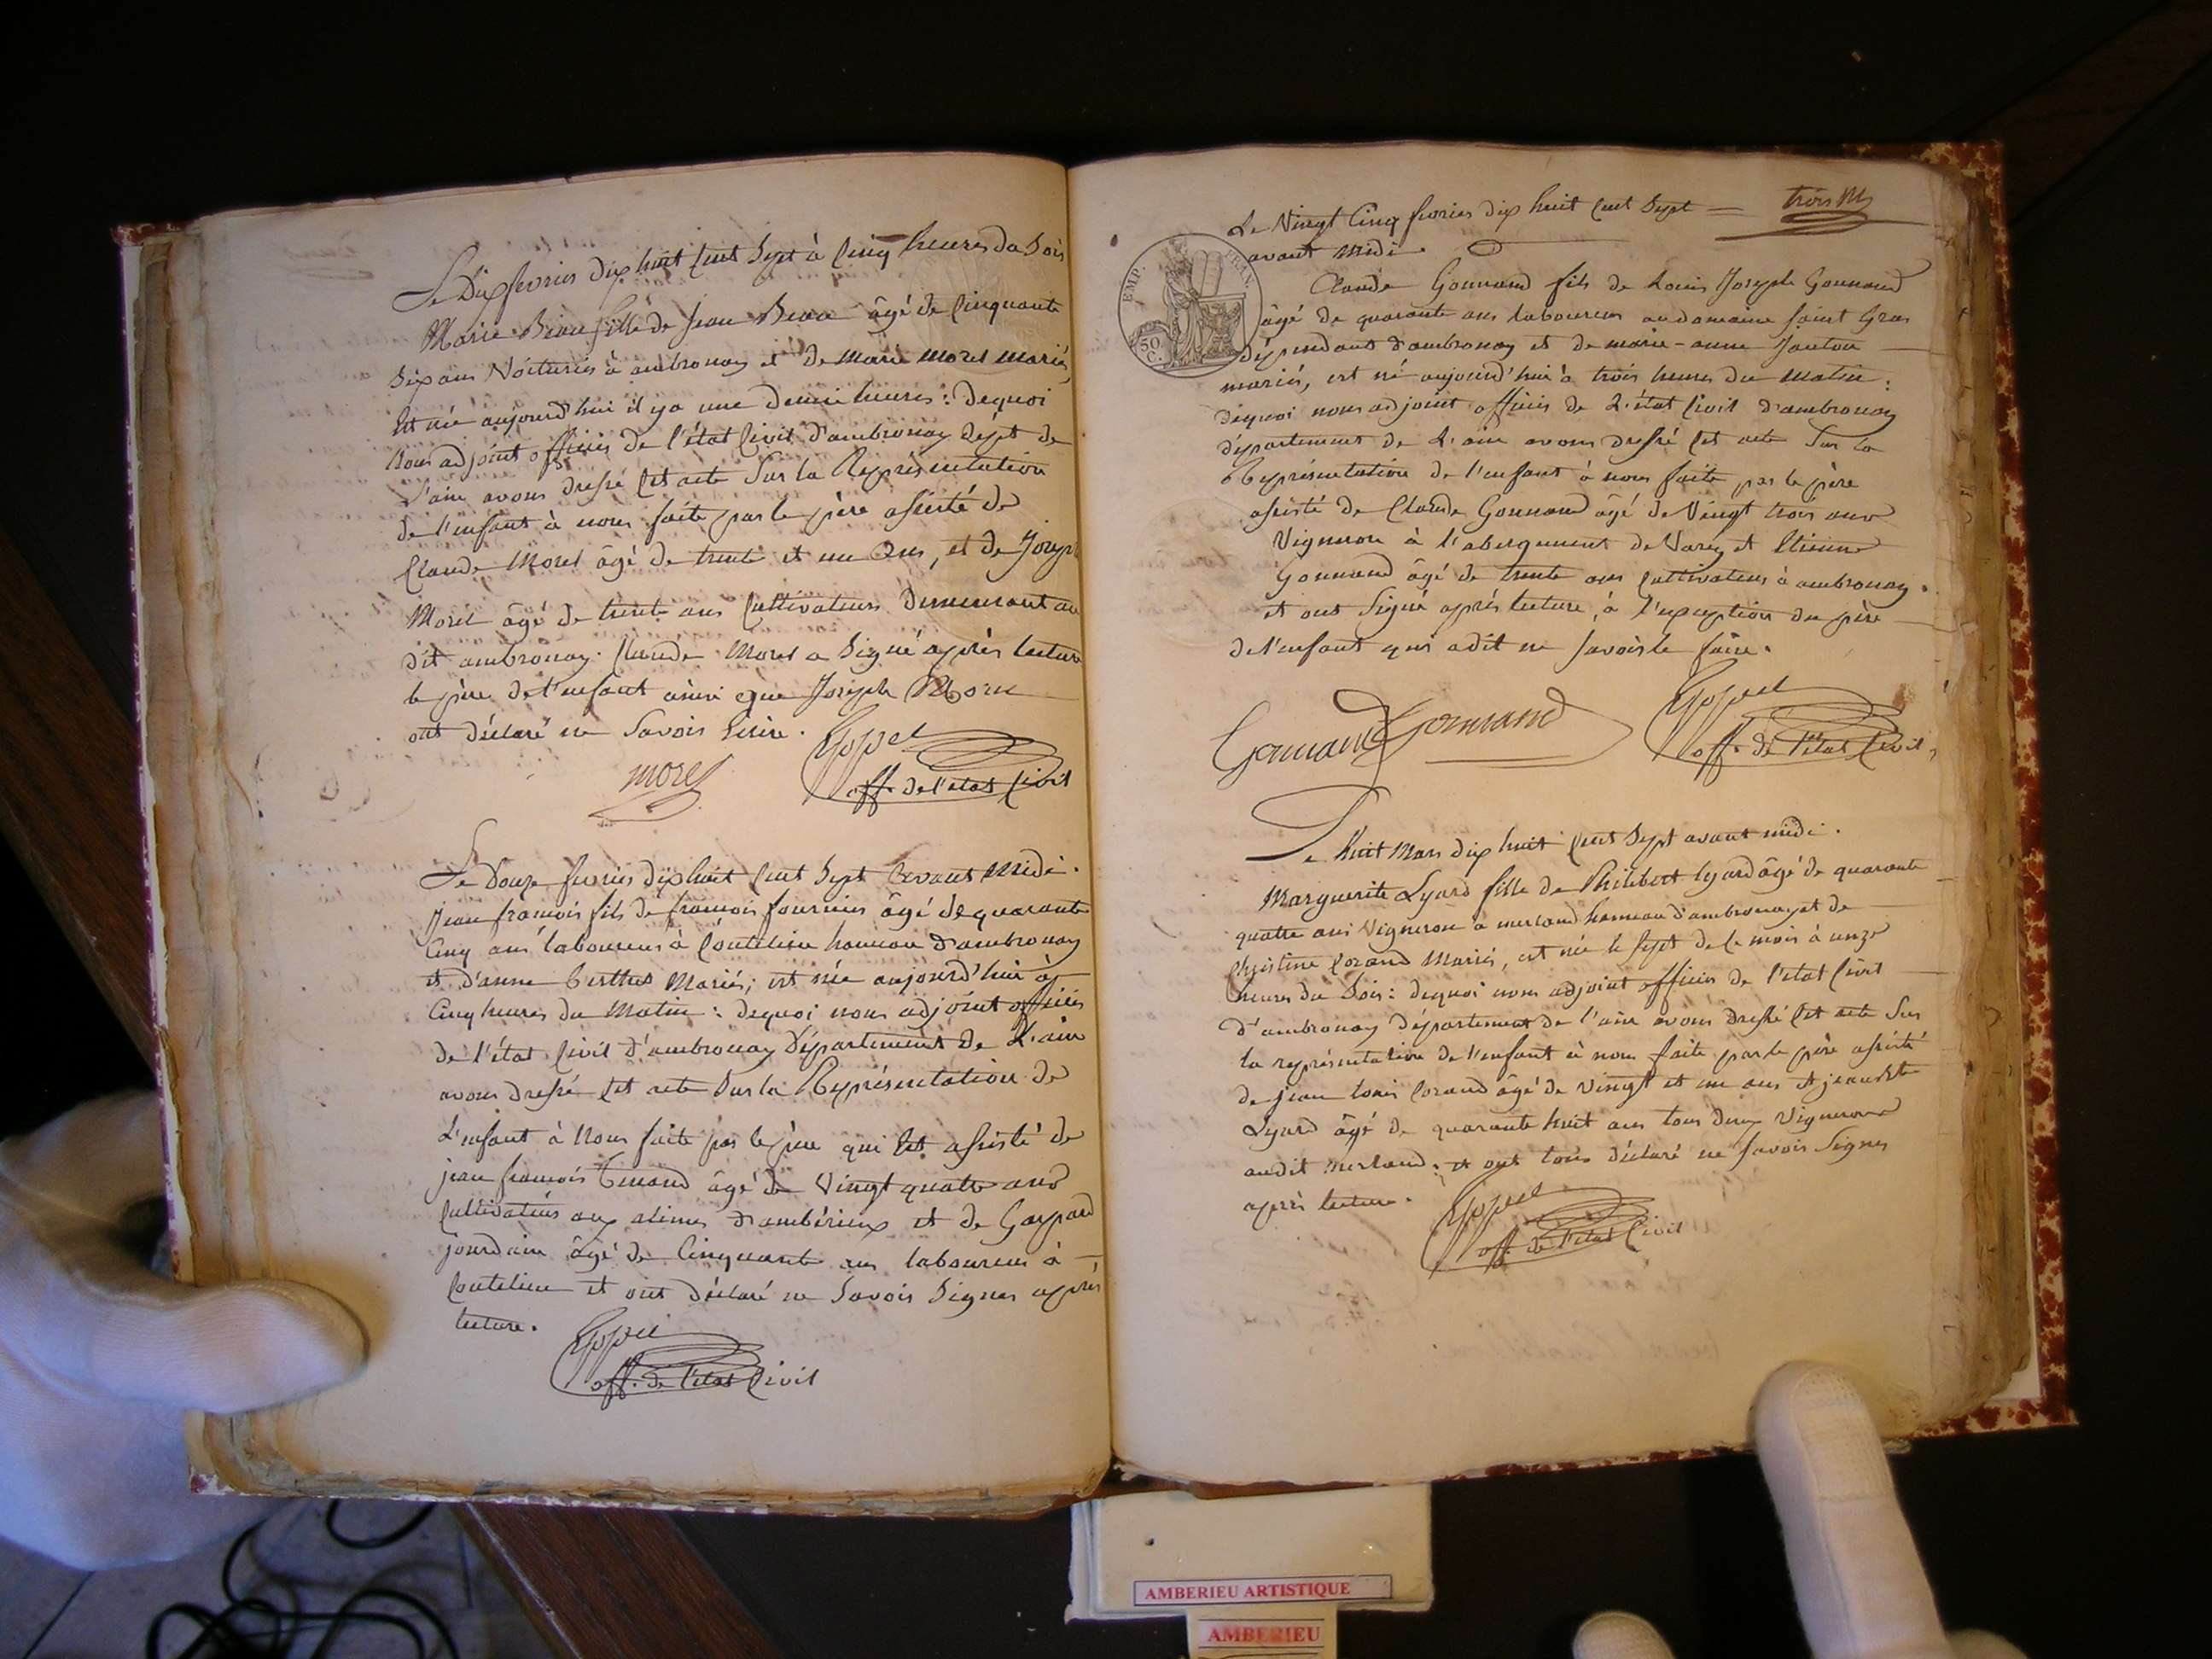 Le Dix fevrier dix huit Cent Sept à Cinq heures du Soir
Marie fille de Jean âgé de Cinquante
Six ans Voiturier à ambronay et de marie morel mariés,
Est née aujourd'hui il y a une demie heures : Dequoi
Nous adjoint officier de l'état Civil d'ambronay Dept de
l'ain avons dressé Cet acte Sur la Représentation
de l'enfant à nous faite par le père assisté de
Claude Morel âgé de trente et un ans, et de Joseph
Morel âgé de trente ans Cultivateurs Demeurant au
dit ambronay. Claude Morel a Signé après lecture
le père de l'enfant ainsi que Joseph Morel
ont déclaré ne Savoir Ecrire.
morel
off. de l'etat Civil
Le Douze fevrier dix huit Cent Sept avant Midi.
Jean françois fils de françois fournier âgé de quarante
Cinq ans laboureur à Coutelieu hameau d'ambronay
et d'anne berthet Mariés; est née aujourd'hui à
Cinq heures du Matin : dequoi nous adjoint officier
de l'état Civil d'ambronay Département de L'ain
avons dressé Cet acte Sur la Représentation de
L'enfant à Nous faite par le père qui Est assisté de
jean françois âgé de Vingt quatre ans
Cultivateur aux alimes d'ambérieux et de Gaspard
jourdain âgé de Cinquante ans laboureur à
Coutelieu et ont déclaré ne Savoir Signer après
lecture.
off. de l'etat Civil
trois
Le Vingt Cinq fevrier dix huit Cent Sept
avant Midi.
EMP. FRAN.
50 C.
Claude Gonnand fils de Louis Joseph Gonnand
âgé de quarante ans laboureur au domaine Saint Gras
dépendant d'ambronay et de marie-anne Janton
mariés, est né aujourd'hui à trois heures du matin :
dequoi nous adjoint officier de L'état Civil d'ambronay
département de L'ain avons dressé Cet acte Sur la
Représentation de l'enfant à nous faite par le père
assisté de Claude Gonnand âgé de Vingt trois ans
Vigneron à l'abergement de Varey et Etienne
Gonnand âgé de trente ans Cultivateur à ambronay.
et ont Signé après lecture, à l'exception du père
de l'enfant qui a dit ne Savoir le faire.
Gonnand Gonnand
off. de l'etat Civil
Le huit Mars dix huit Cent Sept avant midi.
Marguerite Lyard fille de Philibert lyard âgé de quarante
quatre ans Vigneron à merland hameau d'ambronay et de
Christine Corand Mariés, est née le Sept de Ce mois à onze
heures du Soir : dequoi nous adjoint officier de l'etat Civil
d'ambronay Département de l'ain avons dressé Cet acte Sur
la représentation de l'enfant à nous faite par le père assisté
de jean louis Corand âgé de vingt et un ans et
Lyard âgé de quarante huit ans tous deux Vignerons
audit merland : et ont tous déclaré ne Savoir Signer
après lecture.
off. de l'etat Civil
AMBERIEU ARTISTIQUE
AMBERIEU